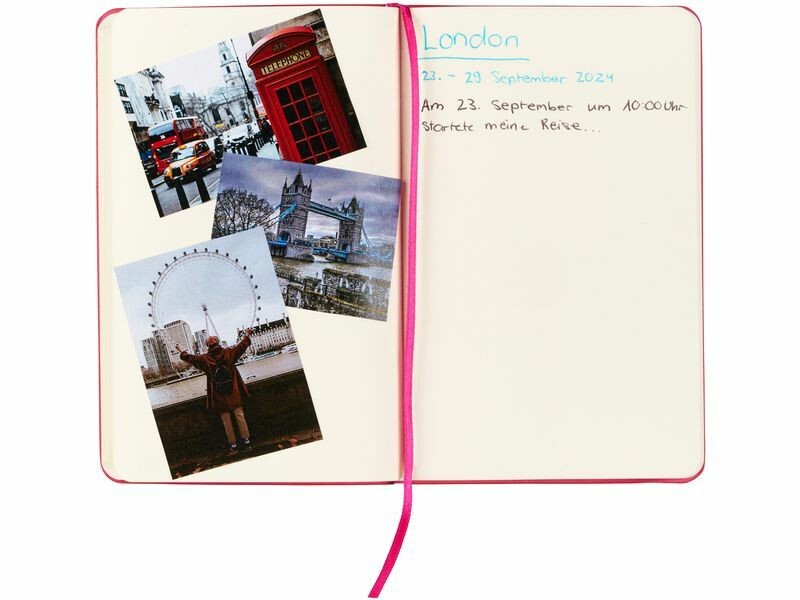 TELEPHONE
London
23. - 29. September 2024
Am 23. September um 10:00 Uhr
startete meine Reise...